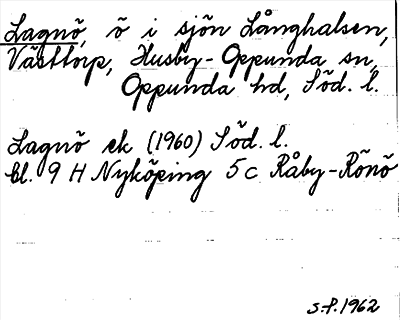 Lagnö, ö i sjön Långhalsen,
Västtorp, Husby-Oppunda sn,
Oppunda hd, Söd. l.
Lagnö ek (1960) Söd. l.
bl. 9 H Nyköping 5 c Råby-Rönö
S.P. 1962